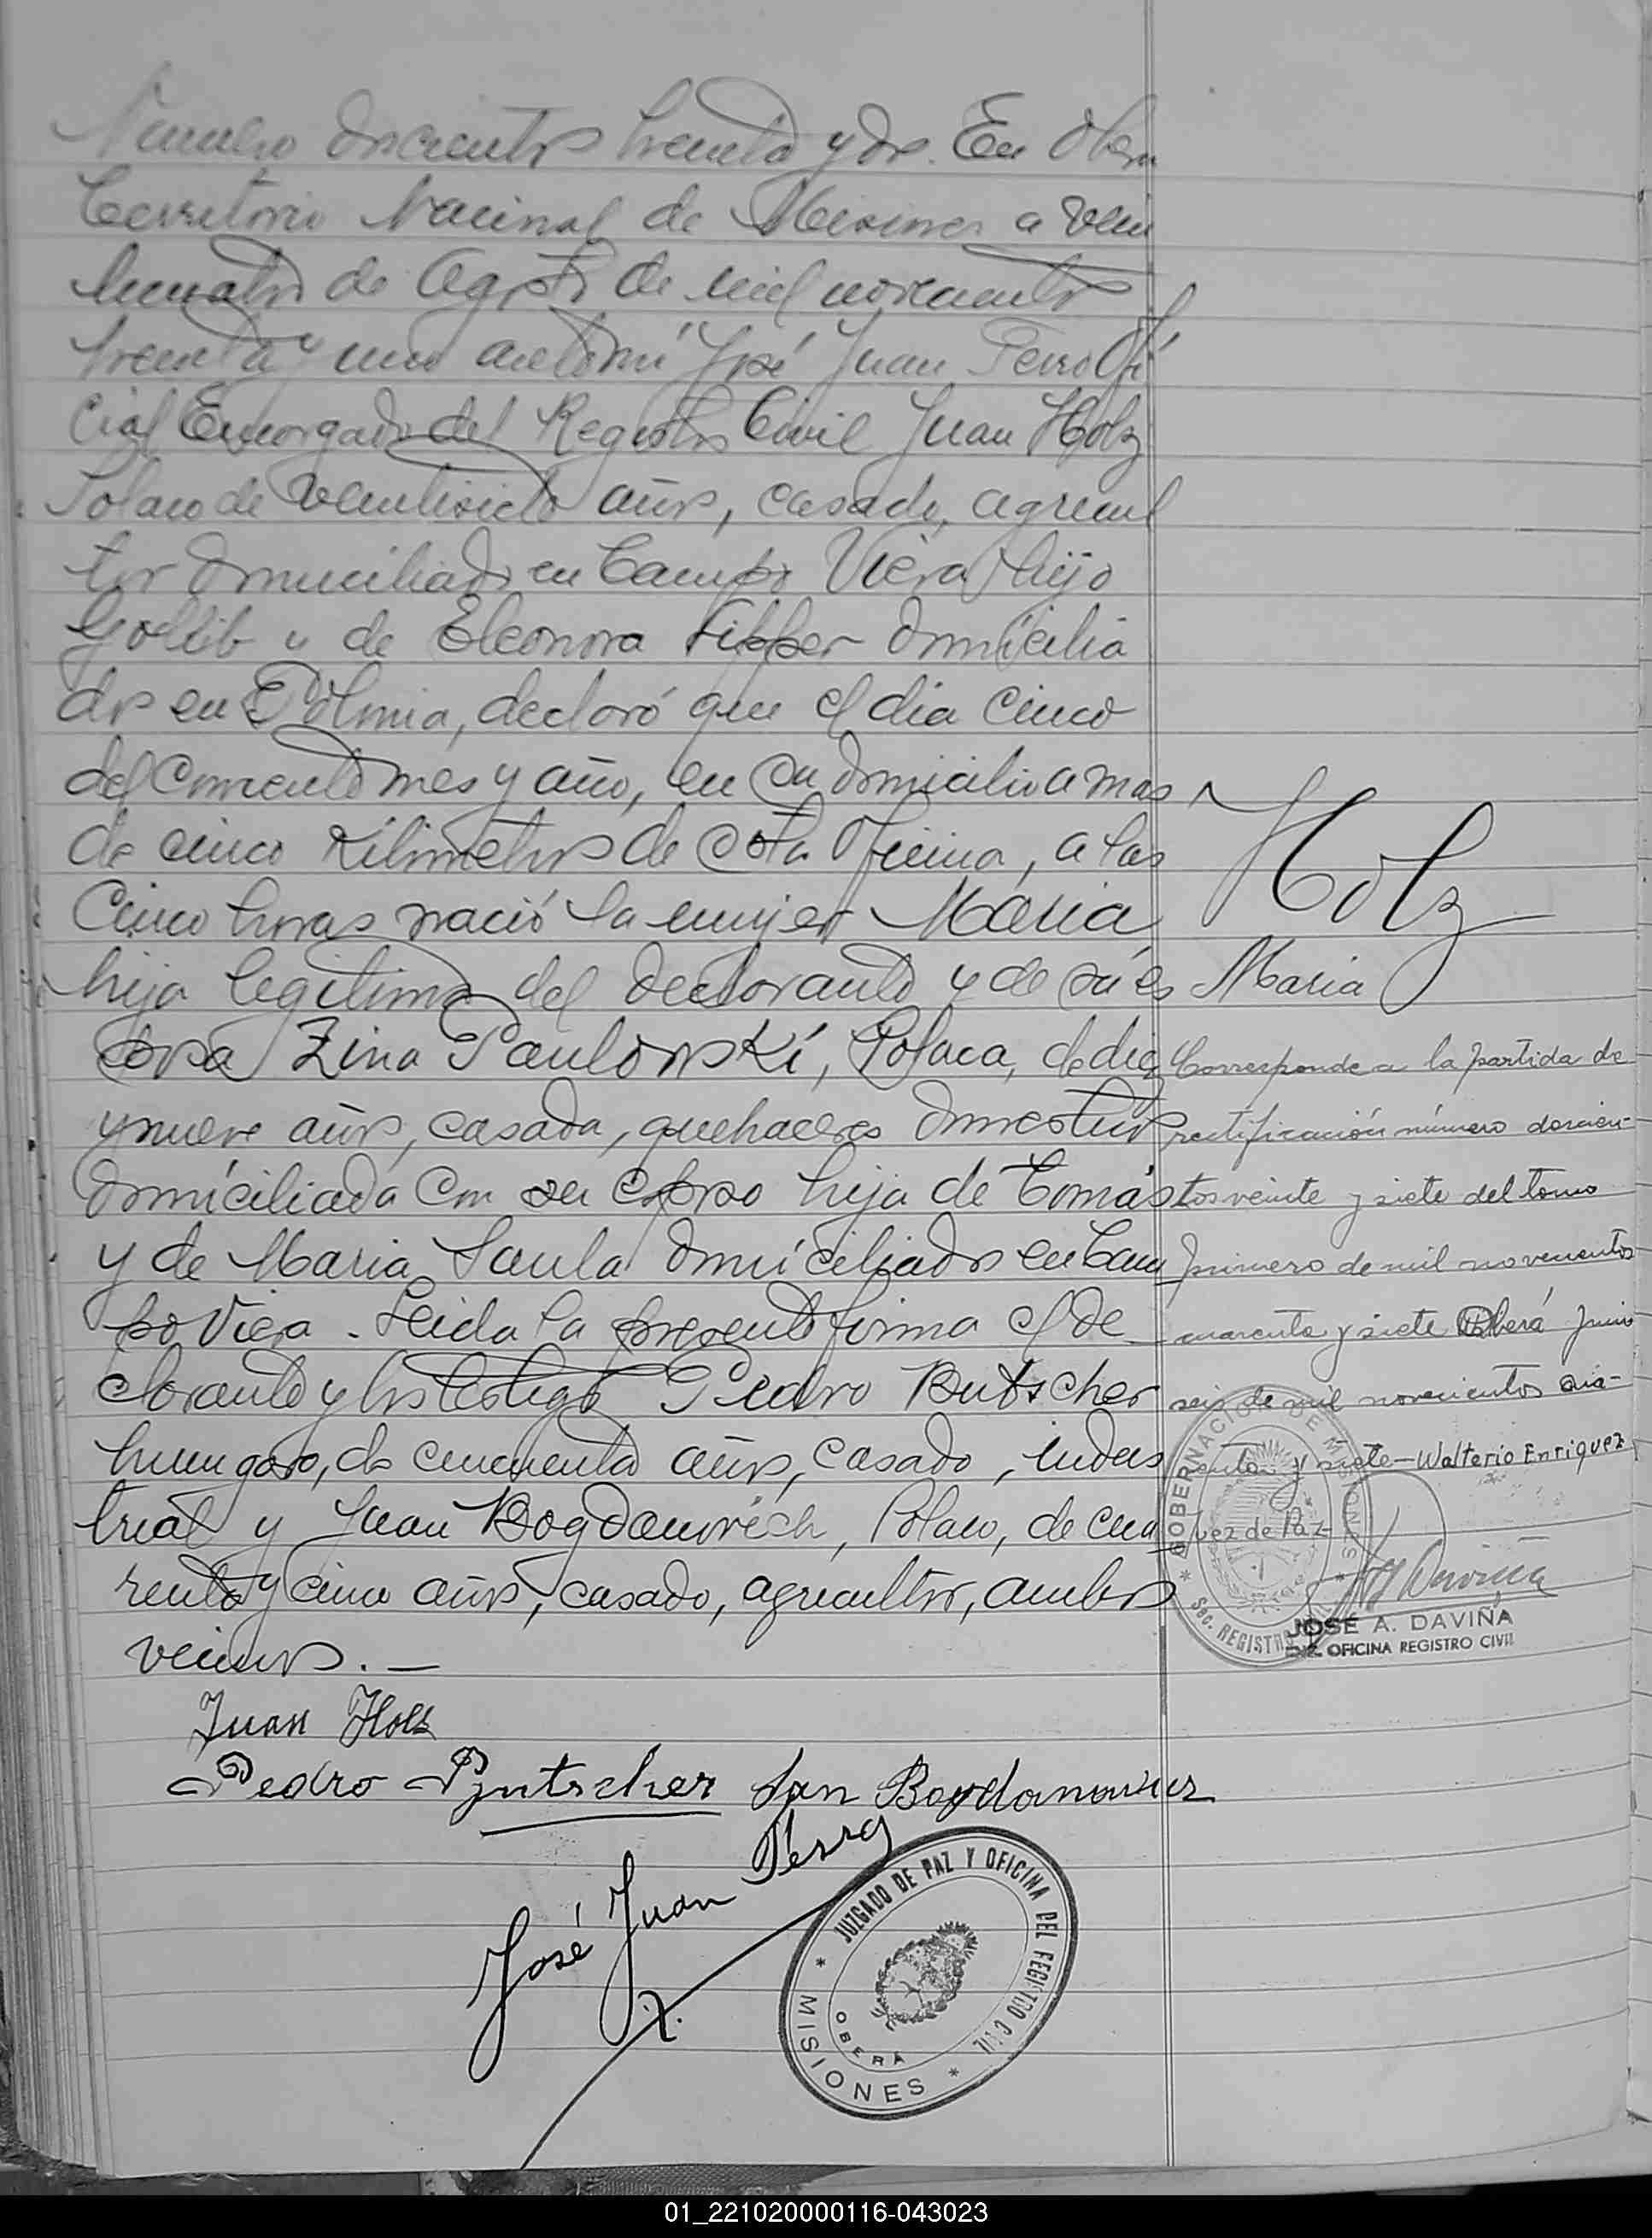 Numero doscientos treinta y dos. En Obera
Territorio Nacional de Misiones a vein
ticuatro de Agosto de mil novecientos
treinta y uno ante mi José Juan Perro Ofi
cial Encargado del Registro Civil Juan Holz
Polaco de veintisiete años, casado, agricul
tor domiciliado en Campo Viera hijo
Gotlib y de Eleonora domicilia
dos en Polonia, declaró que el dia cinco
del corriente mes y año, en su domicilio a mas
de cinco Kilometros de esta Oficina, a las
Cinco horas nació la mujer Maria
hija legitima del declarante y de su es
posa Zina Paulowski, Polaca, de diez
y nueve años, casada, quehaceres domesticos
domiciliada con su esposo hija de Tomás
y de Maria Saula domiciliados en Cam
po Viera. Leida la presente firma el de
clarante y los testigos Pedro Butscher
hungaro, de cincuenta años, casado, indus
trial y Juan Bogdanovich, Polaco, de cua
renta y cinco años, casado, agricultor, ambos
vecinos. —
Juan Holz
Pedro Butscher Jan Bogdanowicz
José Juan Perro
JUZGADO DE PAZ Y OFICINA DEL REGISTRO CIVIL
OBERÁ
* MISIONES *
Holz
Maria
Corresponde a la partida de
rectificación número doscien-
tos veinte y siete del tomo
primero de mil novecientos
cuarenta y siete Oberá Junio
seis de mil novecientos cua-
renta y siete — Walterio Enriquez
Juez de Paz
GOBERNACION DE MISIONES
* Sec. REGISTRO CIVIL *
JOSÉ A. DAVIÑA
OFICINA REGISTRO CIVIL
01_221020000116-043023